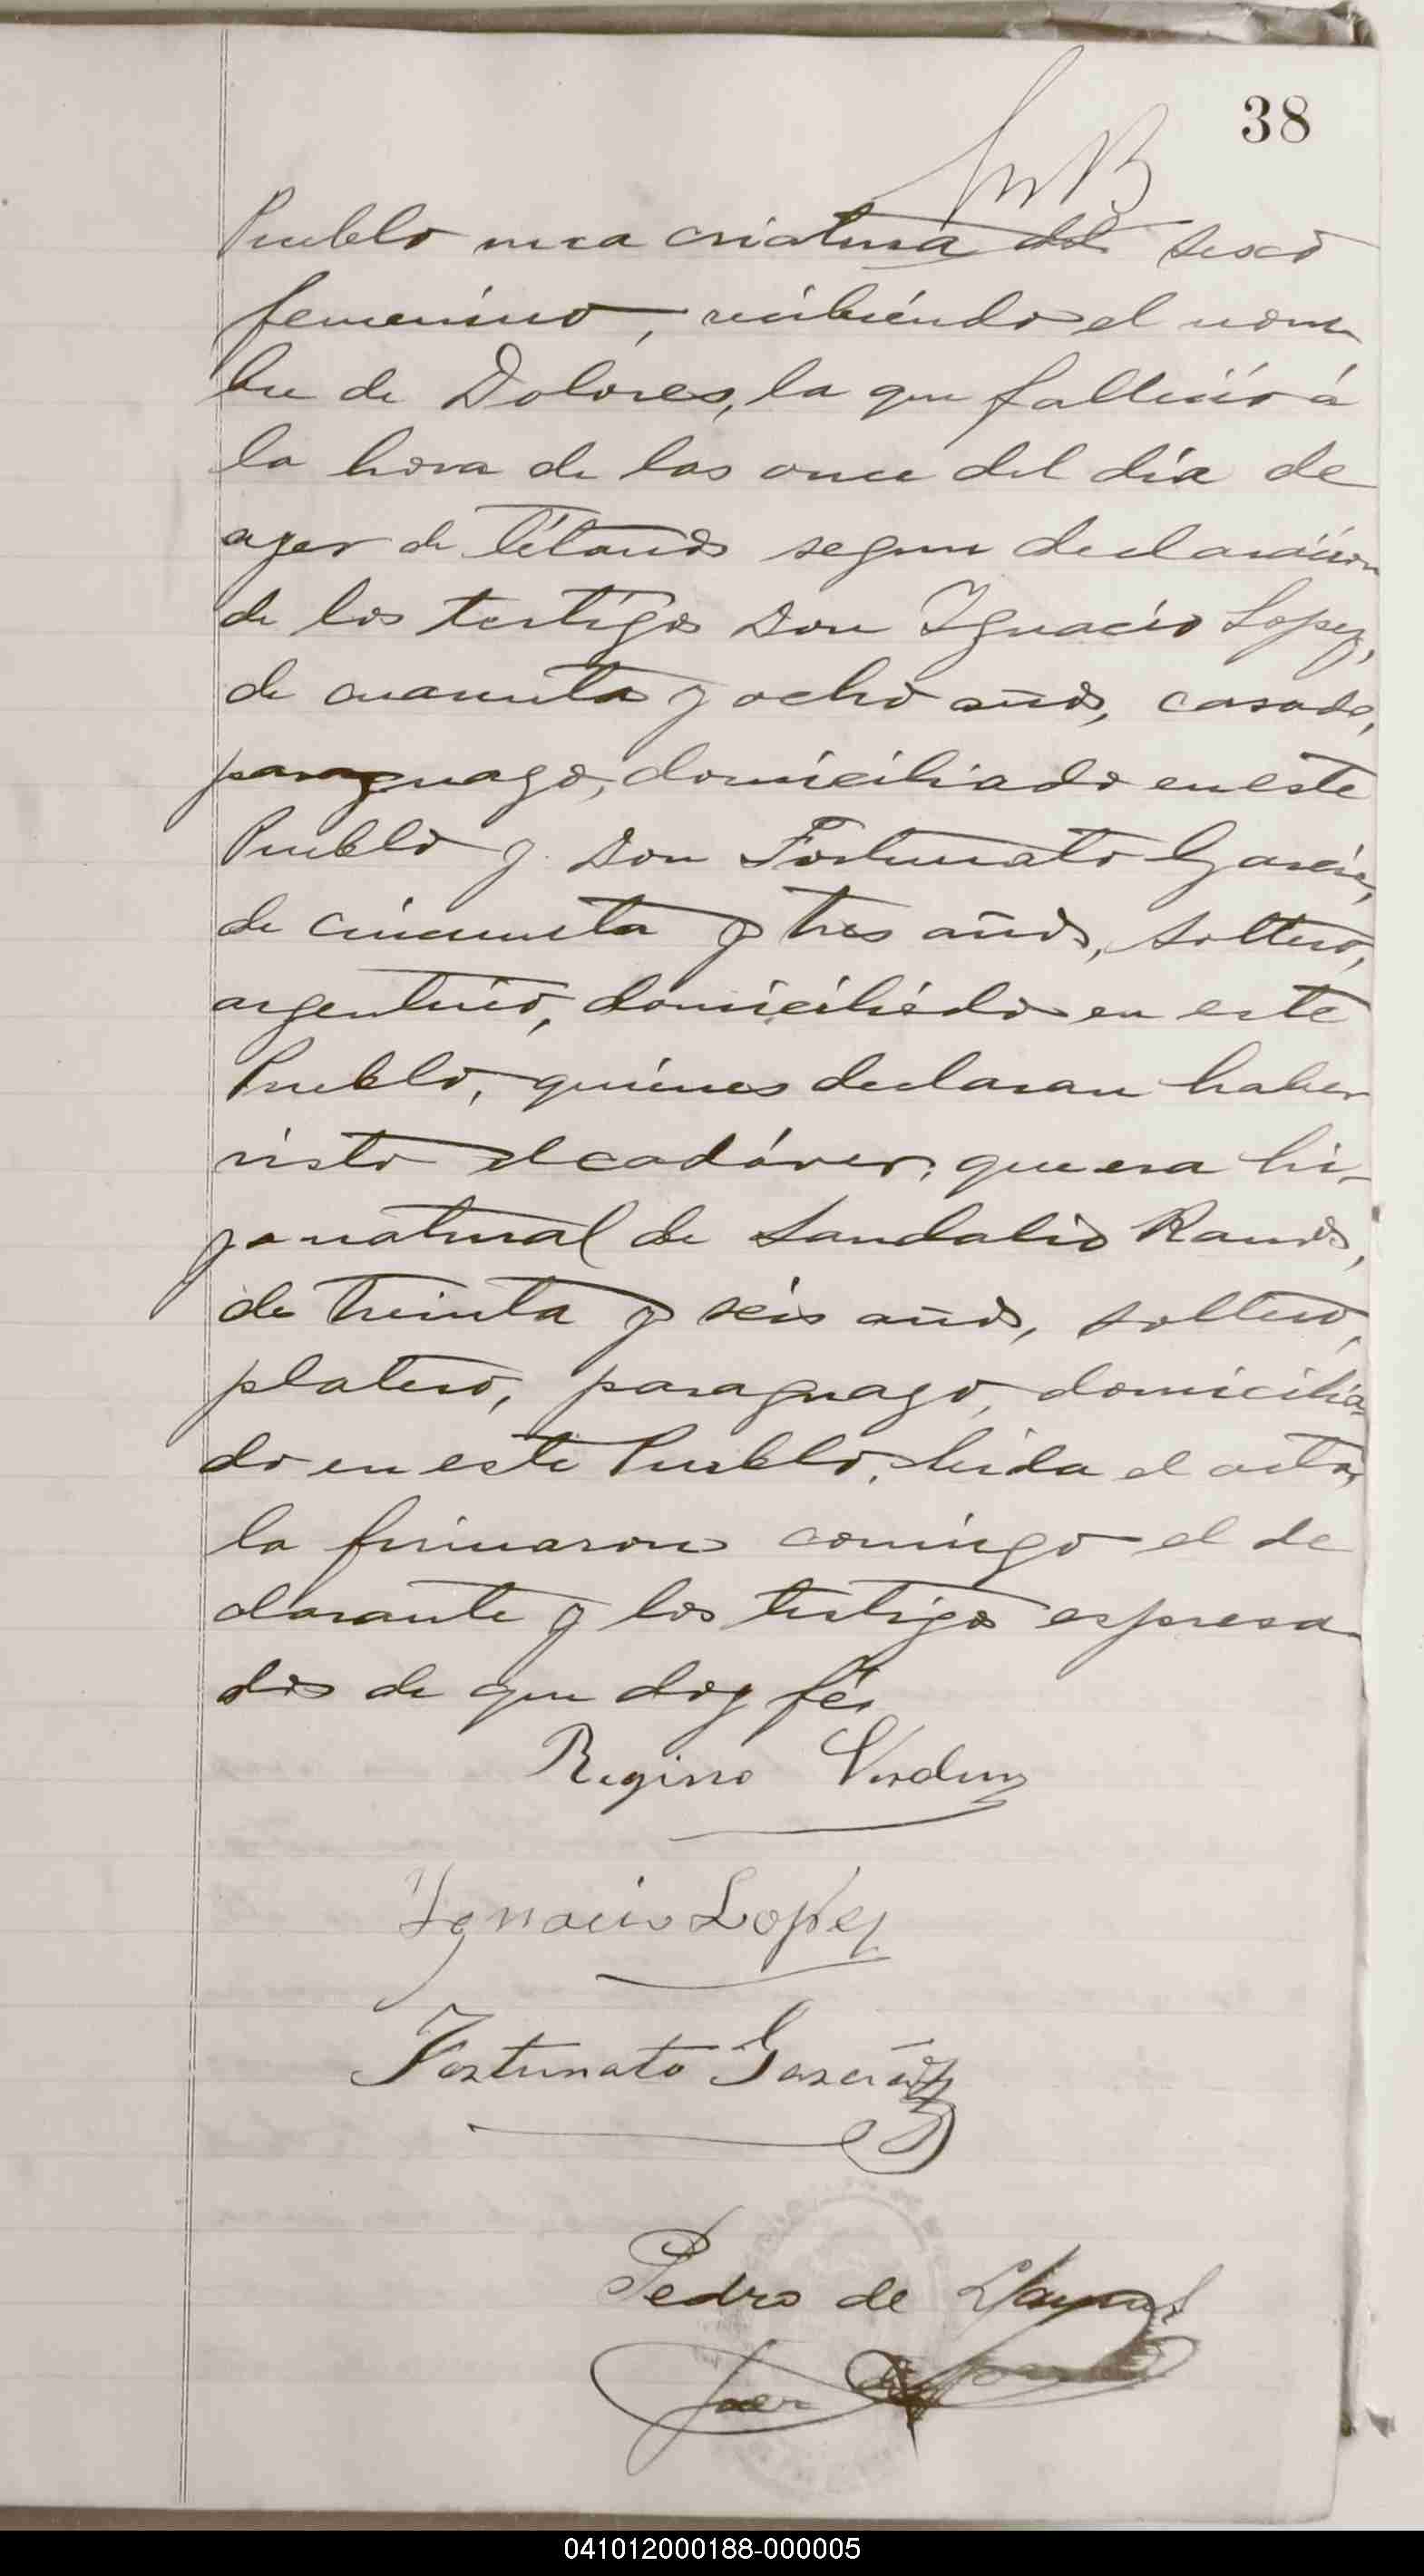 38
Pueblo una criatura del sexo
femenino, recibiendo el nom
bre de Dolores, la que falleció á
la hora de las once del día de
ayer de tétanos segun declaración
de los testigos Don Ignacio Lopez,
de cuarenta y ocho años, casado,
paraguayo, domiciliado en este
Pueblo y Don Fortunato García,
de cincuenta y tres años, soltero,
argentino, domiciliado en este
Pueblo, quienes declaran haber
visto el cadáver; que era hi-
ja natural de Sandalio Ramos,
de treinta y seis años, soltero,
platero, paraguayo, domicilia-
do en este Pueblo. Leida el acta,
la firmaron comigo el de
clarante y los testigos espresa-
dos de que doy fé.
Regino Verdun
Ignacio Lopez
Fortunato García
Pedro de
Juez
041012000188-000005